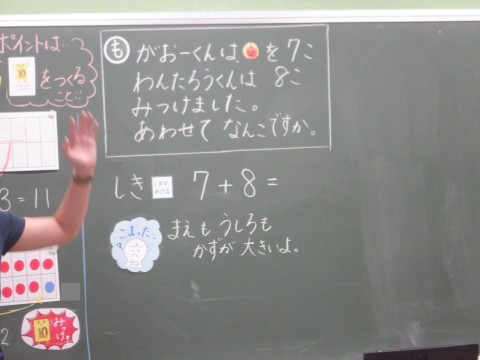 ポイントは…
10
をつくる
こと!!
も がおーくんは を7こ
わんたろうくんは 8こ
みつけました。
あわせて なんこですか。
3=11
しき 7+8=
こまった。
まえも うしろも
かずが 大きいよ。
2
10
みっけ